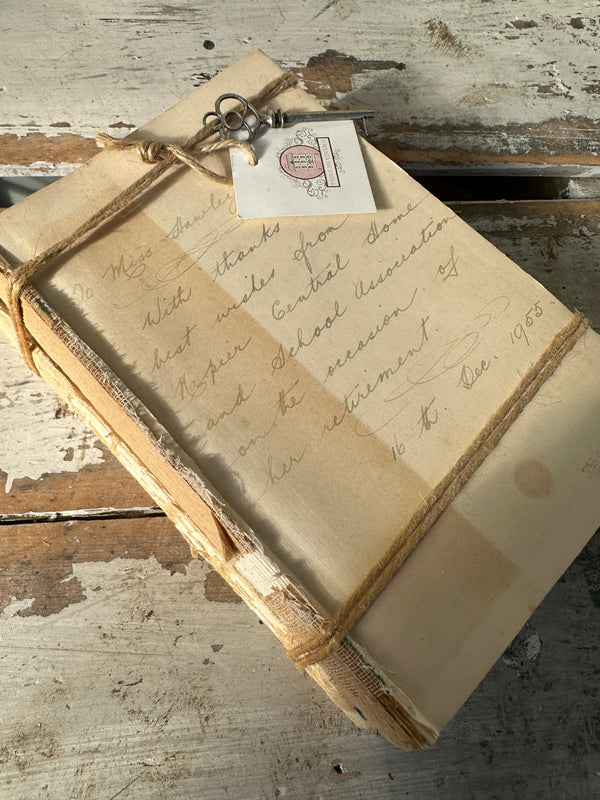 To Miss Sawley
With thanks
best wishes from
Napier Central Home
and School Association
on the occasion of
her retirement.
16 th. Dec. 1955